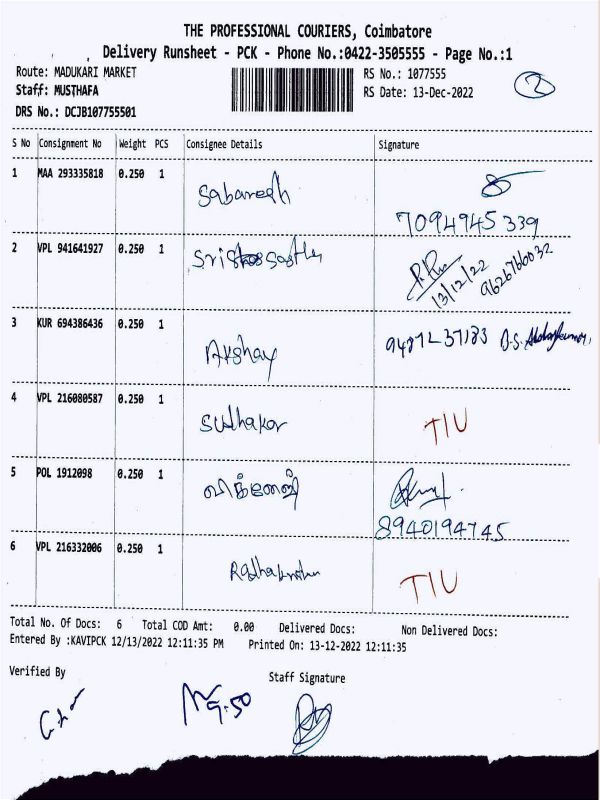 THE PROFESSIONAL COURIERS, Coimbatore
Delivery Runsheet - PCK - Phone No.:0422-3505555 - Page No.:1
Route: MADUKARI MARKET RS No.: 1077555
2
Staff: MUSTHAFA RS Date: 13-Dec-2022
DRS No.: DCJB107755501
S No Consignment No Weight PCS Consignee Details Signature
1 MAA 293335818 0.250 1 Sabaresh
7094945339
2 VPL 941641927 0.250 1
13/12/22 9626766032
3 KUR 694386436 0.250 1 Akshay
4 VPL 216080587 0.250 1 Sudhakar TIU
5 POL 1912098 0.250 1 விக்னேஷ்
8940194745
6 VPL 216332006 0.250 1 TIU
Total No. Of Docs: 6 Total COD Amt: 0.00 Delivered Docs: Non Delivered Docs:
Entered By :KAVIPCK 12/13/2022 12:11:35 PM Printed On: 13-12-2022 12:11:35
Verified By Staff Signature
9:50